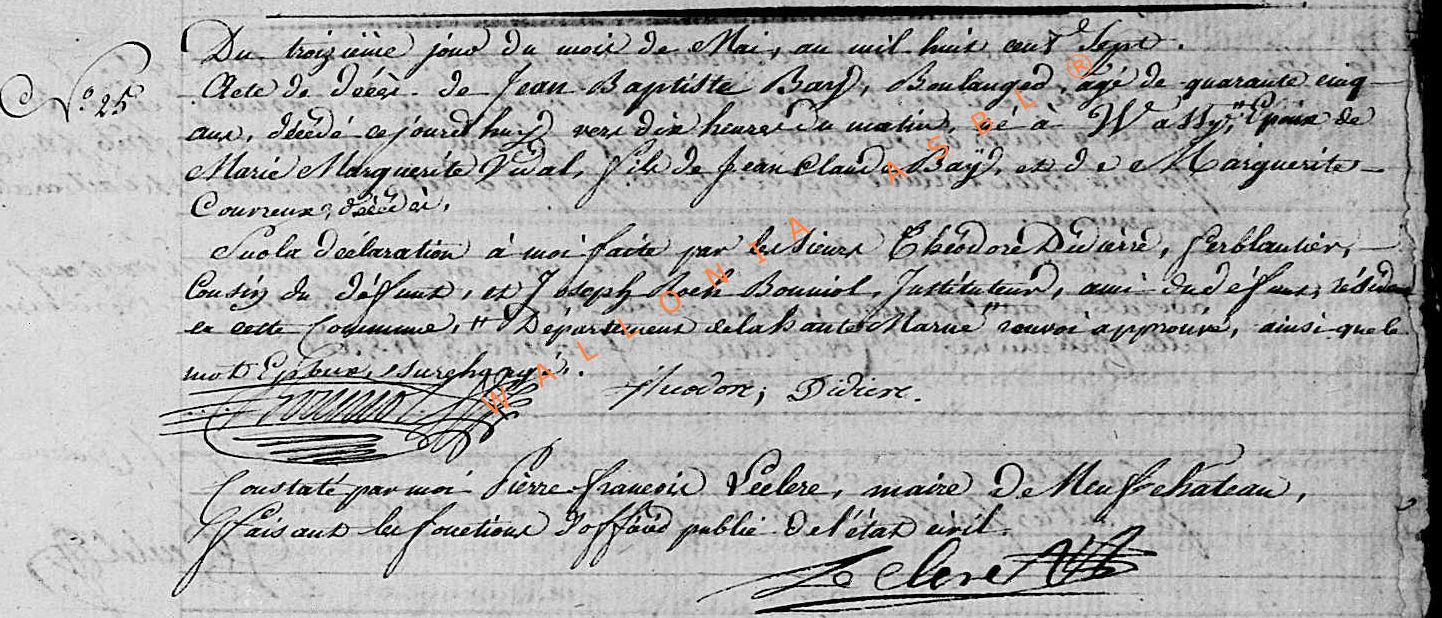 Du troizième jour du mois de Mai, an mil huit cent Sept.
N.º 25
Acte de décès de Jean Baptiste Bay, Boulanger, agé de quarante cinq
ans, décédé ce jourd'huy vers dix heures du matin, né à Wassy," Epoux de
Marie Marguerite Vidal, fils de Jean Claude Baÿ, et de Marguerite
Couvreux, décédés.
Sur la déclaration à moi faite par les Sieurs Théodore Didierre, ferblantier,
Cousin du défunt, et Joseph Roch Bouniol, Instituteur, ami du défunt, résidens
en cette Commune, " Département de la haute Marne" renvoi approuvé, ainsi que le
mot Epoux, surchargé.
Théodore, Didiere.
Constaté par moi Pierre françois Leclerc, maire de Neufchateau,
faisant les fonctions d'officier public de l'état civil.
Leclerc
WALLONIA ASBL ®